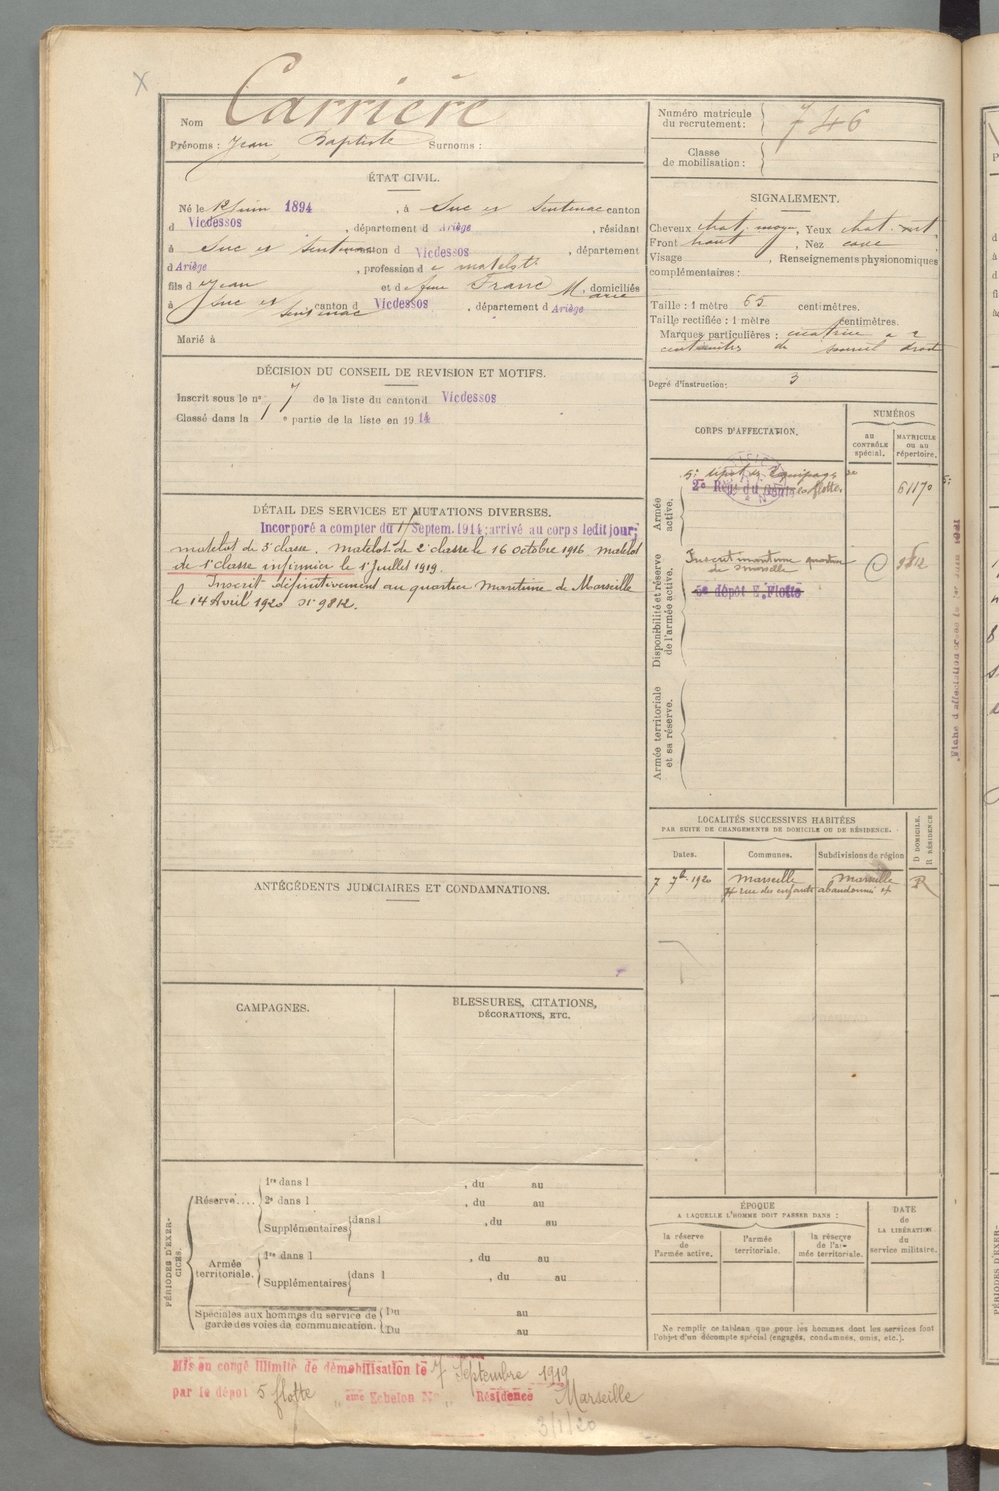 X
Nom Carrière
Prénoms : Jean Baptiste Surnoms :
ÉTAT CIVIL.
Né le Juin 1894, à Suc et Sentenac canton
d Vicdessos, département d Ariège, résidant
à Suc et Sentenac canton d Vicdessos, département
d Ariège, profession d e matelot
fils d Jean et de feue Franc Marie domiciliés
à Suc et Sentenac, canton d Vicdessos, département d Ariège
Marié à
DÉCISION DU CONSEIL DE REVISION ET MOTIFS.
Inscrit sous le n° 7 de la liste du canton d Vicdessos
Classé dans la 1 e partie de la liste en 1914
DÉTAIL DES SERVICES ET MUTATIONS DIVERSES.
Incorporé a compter du Septem. 1914; arrivé au corps ledit jour;
matelot de 3e classe. Matelot de 2e classe le 16 octobre 1916. matelot
de 1e classe infirmier le 1er Juillet 1919.
Inscrit définitivement au quartier maritime de Marseille
le 14 Avril 1920 N° 9812.
ANTÉCÉDENTS JUDICIAIRES ET CONDAMNATIONS.
CAMPAGNES.
BLESSURES, CITATIONS,
DÉCORATIONS, ETC.
PÉRIODES D'EXERCICES.
Réserve....
1re dans l , du au
2e dans l , du au
Supplémentaires dans l , du au
Armée territoriale.
1re dans l , du au
Supplémentaires dans l , du au
Spéciales aux hommes du service de Du au
garde des voies de communication. Du au
Mis en congé illimité de démobilisation le 7 Septembre 1919
par le dépôt 5 flotte ème Echelon N° Résidence Marseille
3/1/20
Numéro matricule
du recrutement : 746
Classe
de mobilisation :
SIGNALEMENT.
Cheveux chat. moyen, Yeux chat. vert
Front haut, Nez cave
Visage , Renseignements physionomiques
complémentaires :
Taille : 1 mètre 65 centimètres.
Taille rectifiée : 1 mètre centimètres.
Marques particulières : cicatrice a 2
centimètres du sourcil droit
Degré d'instruction : 3
CORPS D'AFFECTATION.
NUMÉROS
au
CONTRÔLE
spécial.
MATRICULE
ou au
répertoire.
Armée
active.
5e dépôt des Equipages
de la flotte. 61170
2e Reg. du Génie
Disponibilité et réserve
de l'armée active.
Inscrit maritime quartier
de Marseille 9812
5e dépôt E. Flotte
Armée territoriale
et sa réserve.
LOCALITÉS SUCCESSIVES HABITÉES
PAR SUITE DE CHANGEMENTS DE DOMICILE OU DE RÉSIDENCE.
Dates. Communes. Subdivisions de région
D DOMICILE.
R RÉSIDENCE
7 7bre 1920 Marseille Marseille R
4 rue des enfants abandonnés
ÉPOQUE
A LAQUELLE L'HOMME DOIT PASSER DANS :
la réserve
de
l'armée active.
l'armée
territoriale.
la réserve
de l'ar-
mée territoriale.
DATE
de
LA LIBÉRATION
du
service militaire.
Ne remplir ce tableau que pour les hommes dont les services font
l'objet d'un décompte spécial (engagés, condamnés, omis, etc.).